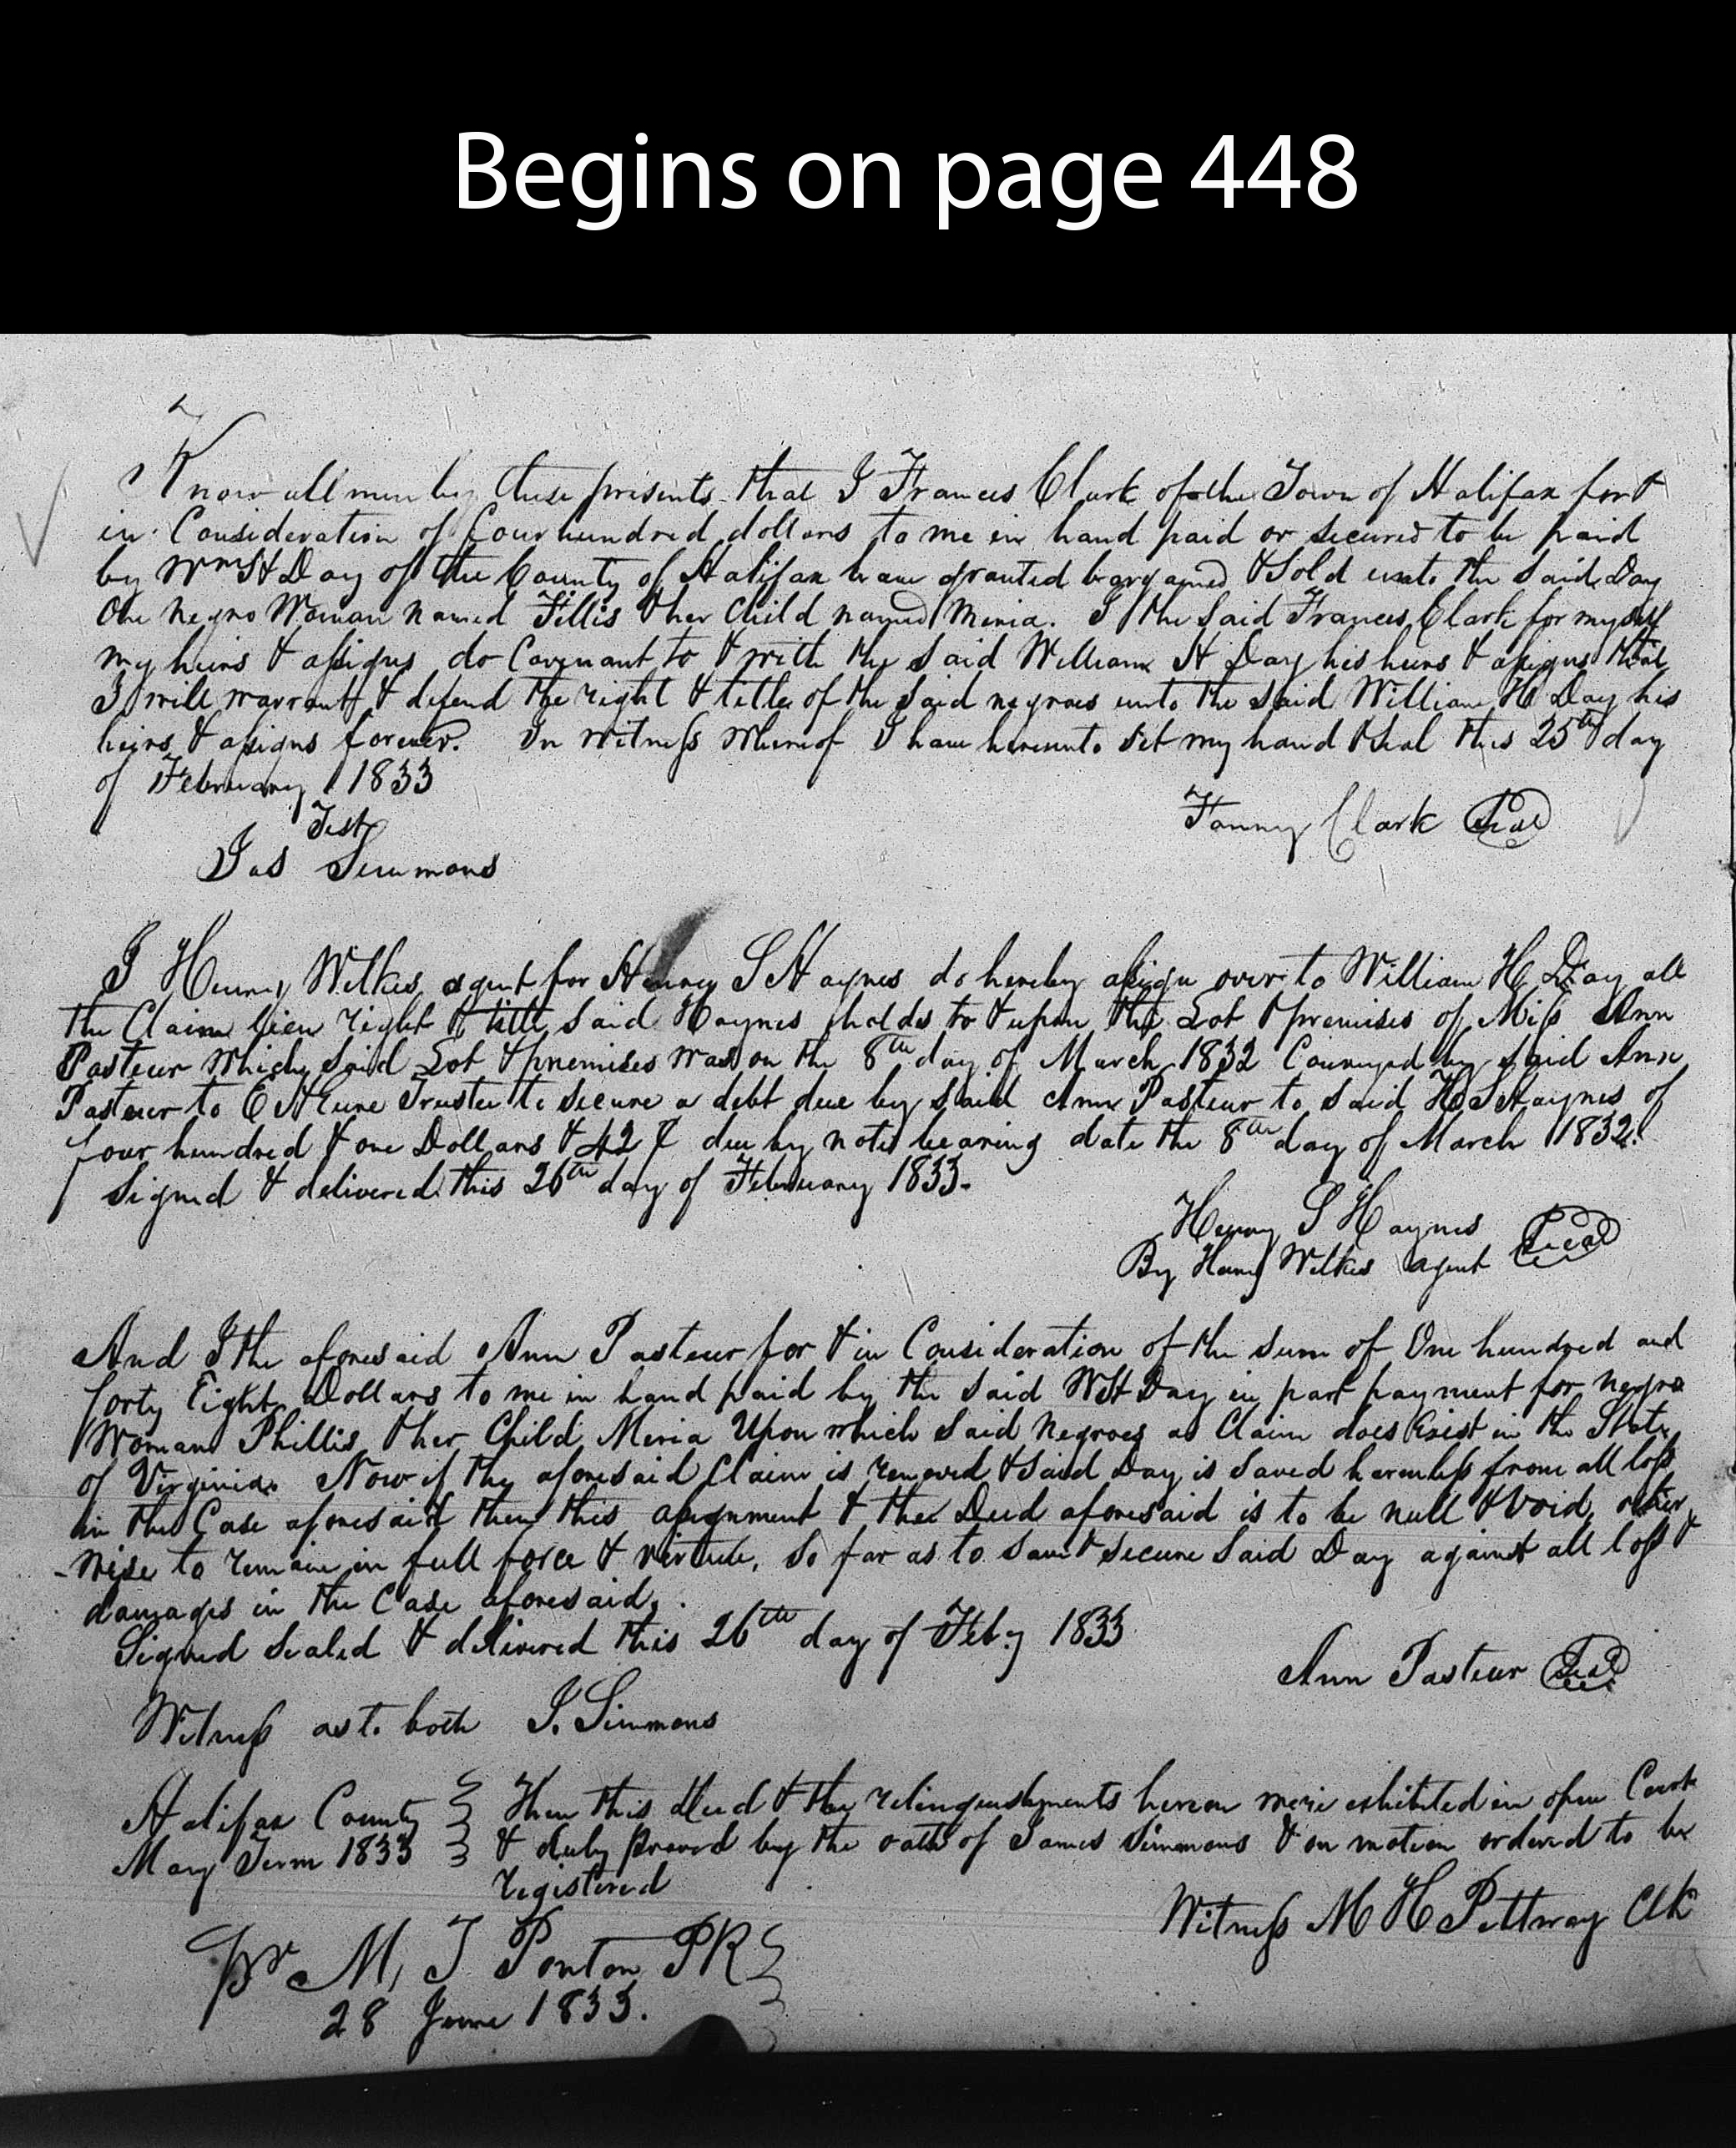 Begins on page 448
Know all men by these presents that I Frances Clark of the Town of Halifax for &
in Consideration of four hundred dollars to me in hand paid or secured to be paid
by Wm H Day of the County of Halifax have granted bargained & Sold unto the said Day
One negro Woman named Fillis & her Child named Meria. I the Said Frances Clark for myself
my heirs & assigns do Covenant to & with the said William H Day his heirs & assigns that
I will warrant & defend the right & title of the said negroes unto the said William H Day his
heirs & assigns forever. In witness whereof I have hereunto set my hand & seal this 25th day
of February 1833
Test
Fanny Clark Seal
Jas Simmons
I Henry Wilkes agent for Henry S Haynes do hereby assign over to William H Day all
the Claim lien right & title said Haynes holds to & upon the Lot & premises of Miss Ann
Pasteur which said Lot & premises was on the 8th day of March 1832 Conveyed by said Ann
Pasteur to Trustee to secure a debt due by said Ann Pasteur to said H S Haynes of
four hundred & one Dollars & 42 due by note bearing date the 8th day of March 1832.
Signed & delivered this 26th day of February 1833.
Henry S Haynes
By Henry Wilkes agent Seal
And I the aforesaid Ann Pasteur for & in Consideration of the sum of One hundred and
forty Eight Dollars to me in hand paid by the said WH Day in part payment for negro
Woman Phillis & her Child Meria Upon which said Negroes a Claim does Exist in the State
of Virginia. Now if the aforesaid Claim is removed & said Day is saved harmless from all loss
in the Case aforesaid then this assignment & the Deed aforesaid is to be null & void, other
-wise to remain in full force & virtue, so far as to save & secure said Day against all loss &
damages in the Case aforesaid.
Signed sealed & delivered this 26th day of Feby 1833
Ann Pasteur Seal
Witness as to both J. Simmons
Halifax County Then this deed & the relinquishments hereon were exhibited in open Court
May Term 1833 & duly proved by the oath of James Simmons & on motion ordered to be
registered
Witness M H Pettway Clk
Pr M, T Ponton PR
28 June 1833.